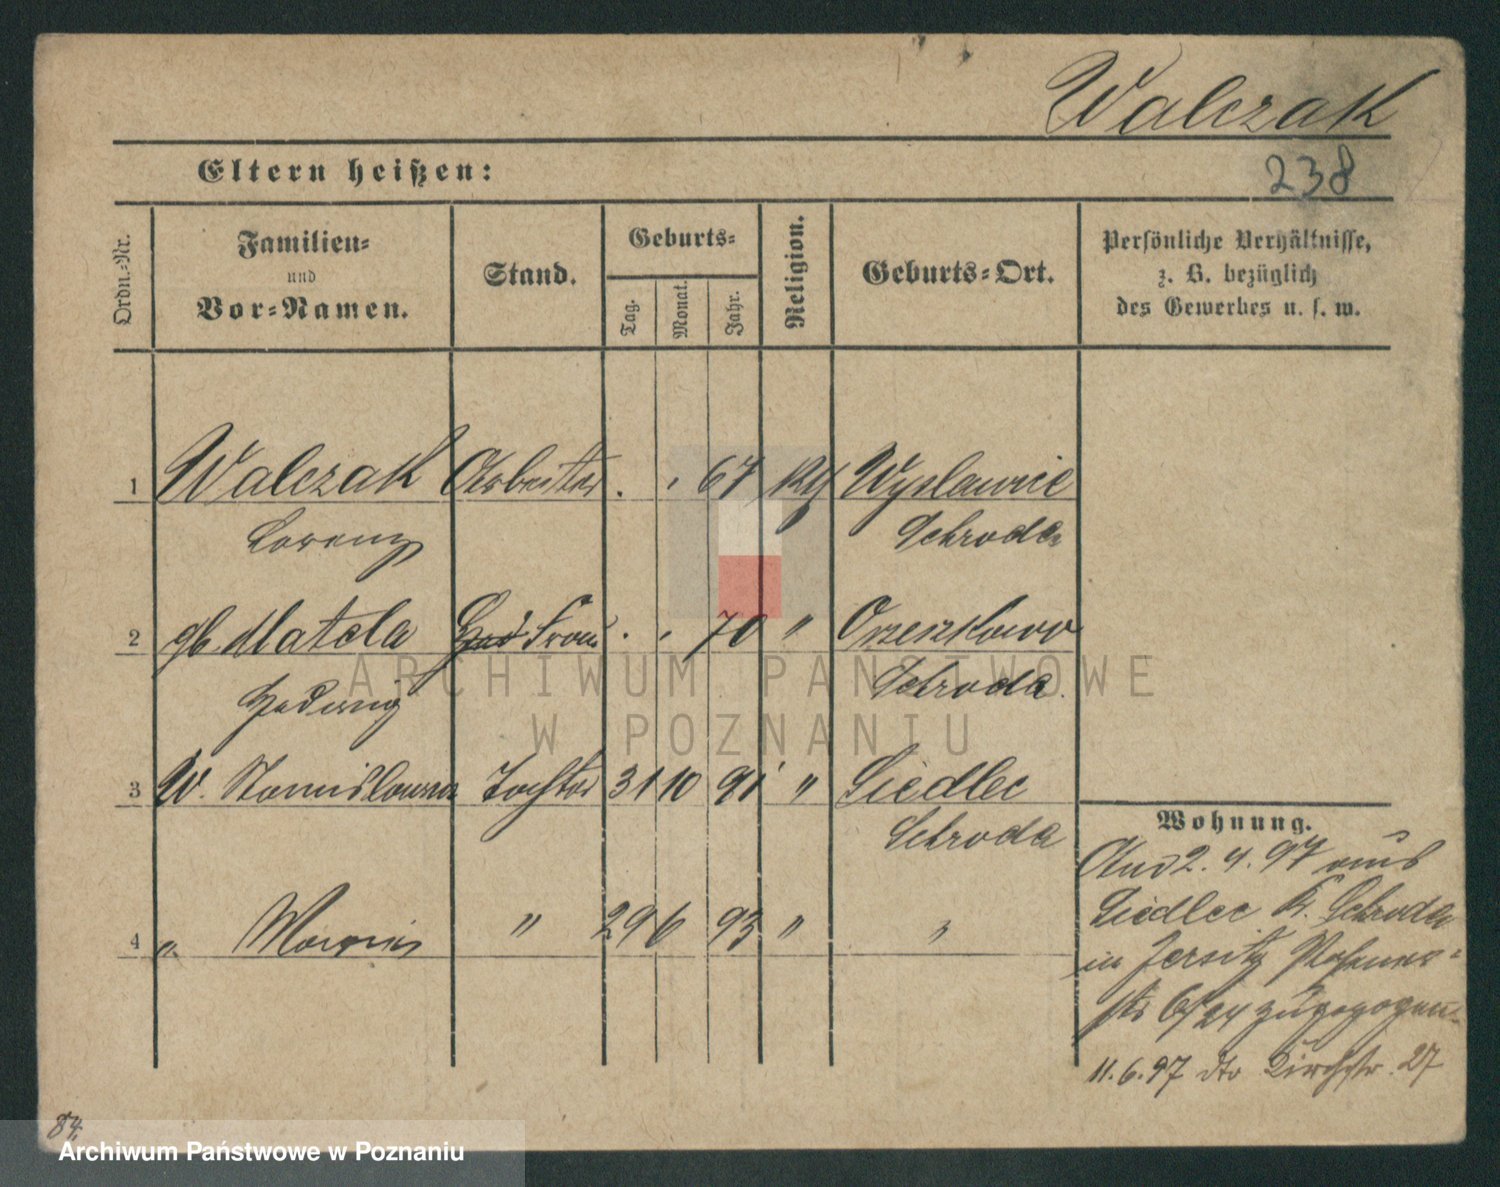 Walczak
Eltern heißen:
238
Ordn.-Nr.
Familien-
und
Vor-Namen.
Stand.
Geburts-
Tag.
Monat.
Jahr.
Religion.
Geburts-Ort.
Persönliche Verhältnisse,
z. B. bezüglich
des Gewerbes u. s. w.
1 Walczak Arbeiter . . 67 Wyslawice
Lorenz Schroda
2 gb. Matela Frau . . 70 " Orzeszkowo
Hedwig Schroda.
3 W. Stanislawa Tochter 31 10 91 " Siedlec
Schroda
4 " " 29 6 93 " "
Wohnung.
2. 4. 97 aus
Siedlec K. Schroda
in Jersitz
6/24 zugezogen.
11.6.97 dto Kirchstr. 27
84.
ARCHIWUM PAŃSTWOWE
W POZNANIU
Archiwum Państwowe w Poznaniu